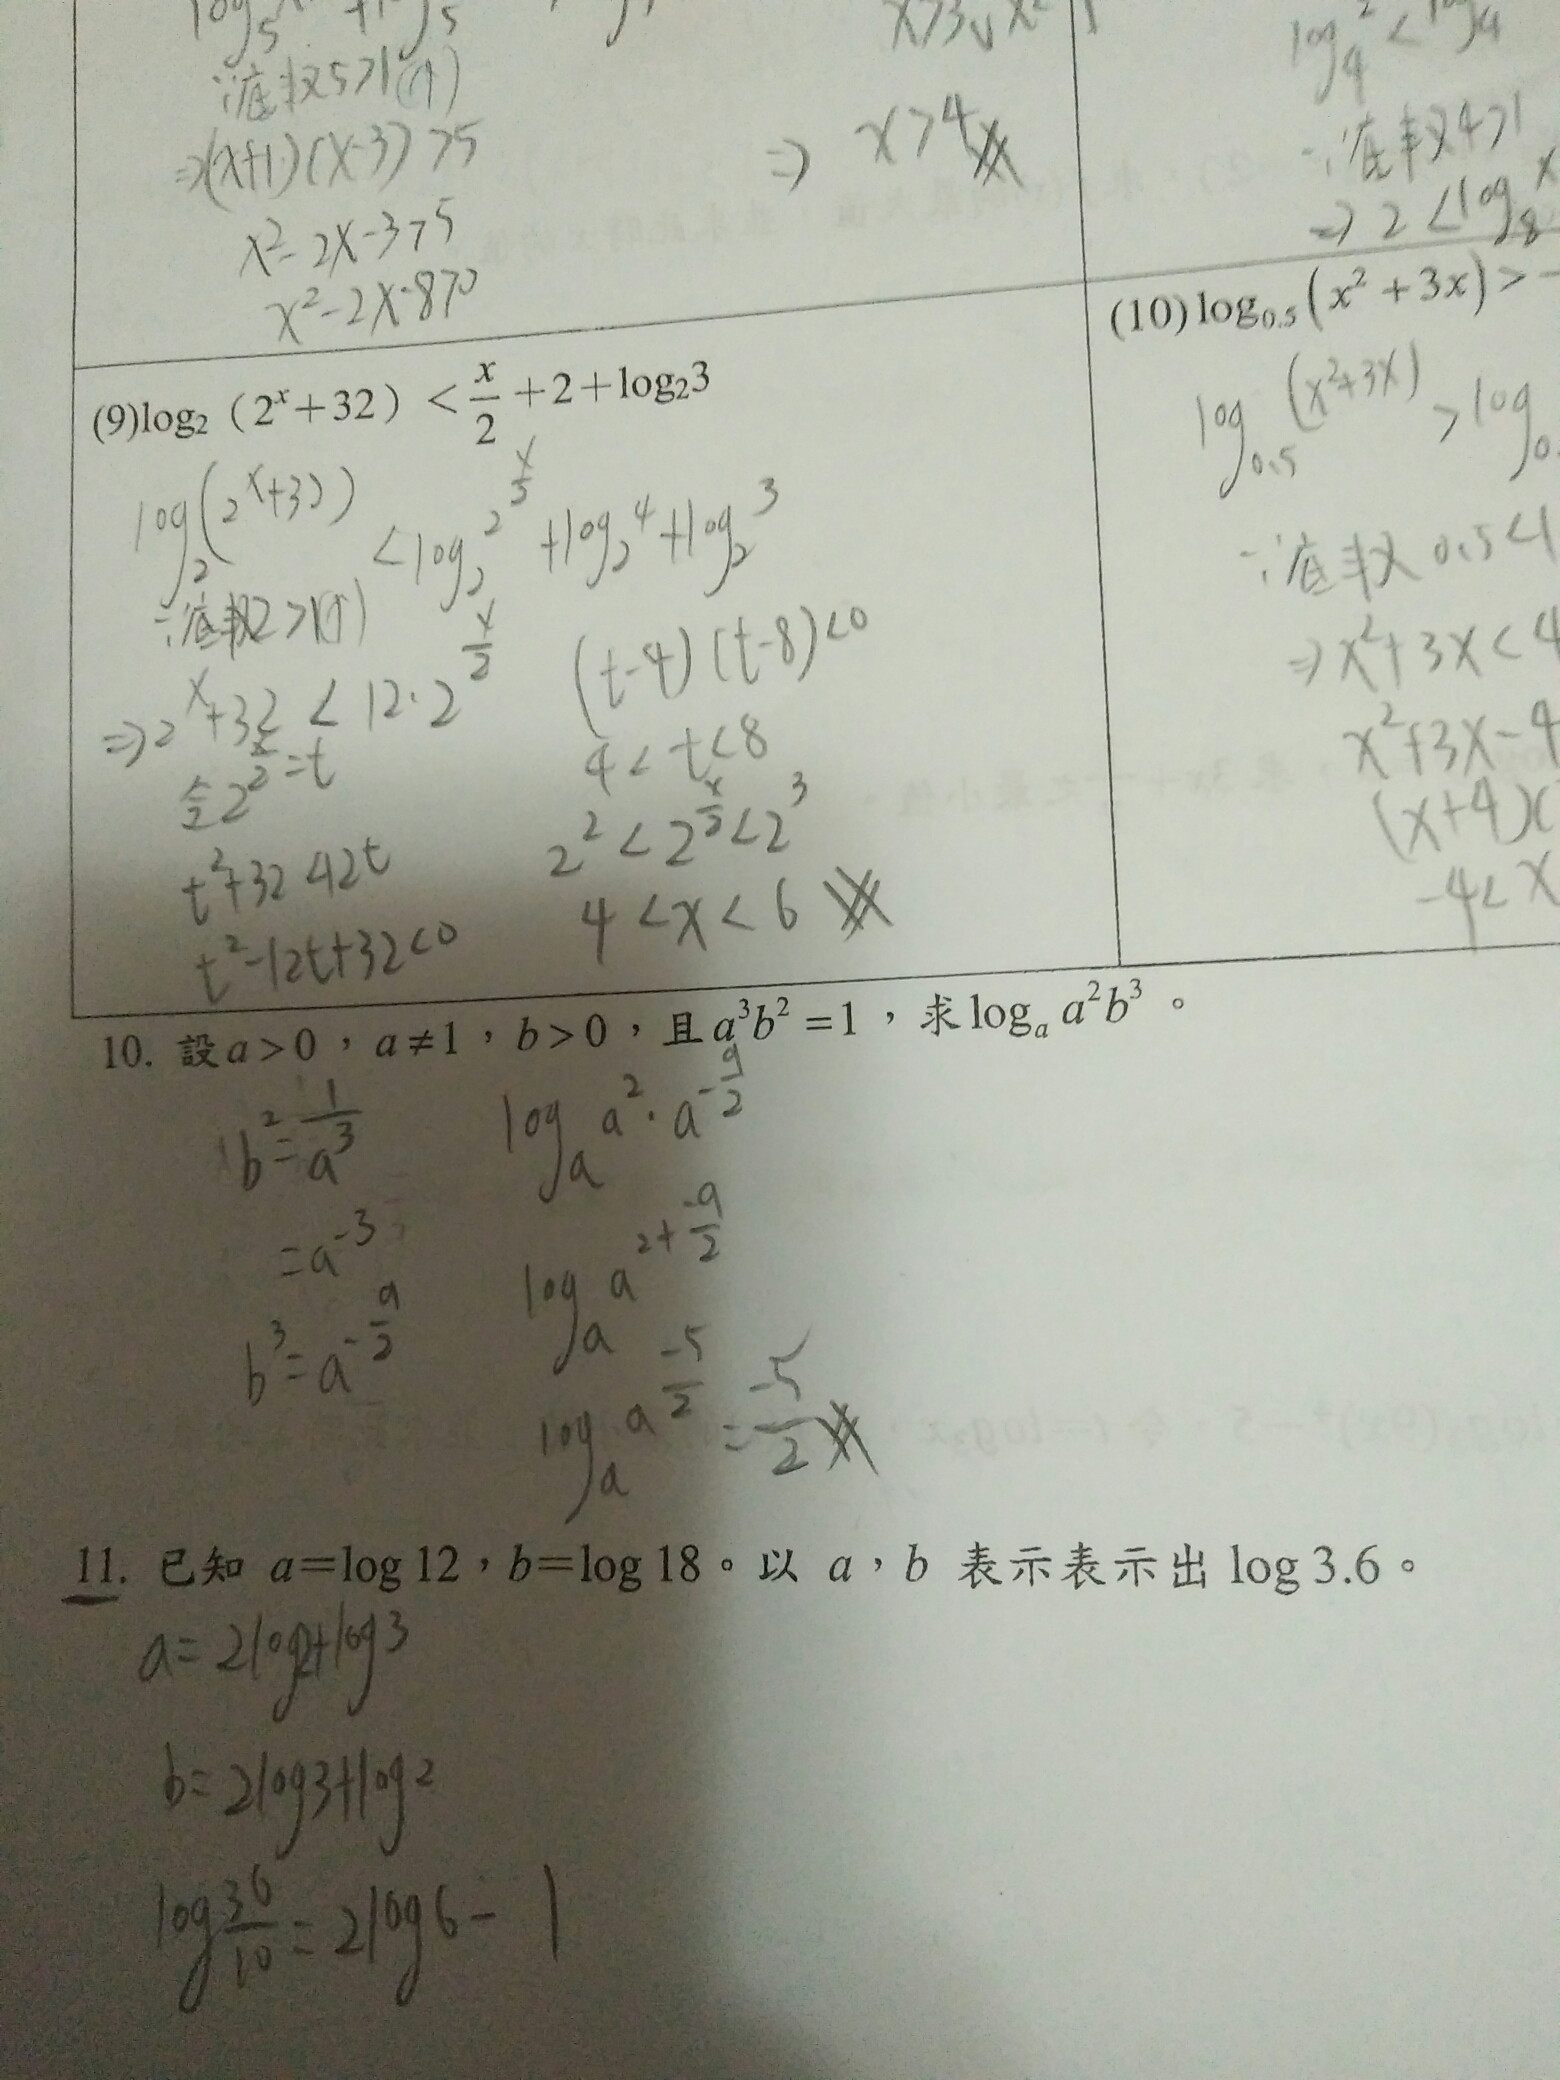 ∵底数5>1(↑)
⇒(x+1)(x-3)>5
x²-2x-3>5
x²-2x-8>0
⇒ x>4
∵底数4>1
⇒ 2<log₈x
(9)log₂（2ˣ+32）<x/2+2+log₂3
log₂(2ˣ+32) <log₂2^(x/2) +log₂4+log₂3
∵底数2>1(↑)
⇒2ˣ+32 < 12·2^(x/2)
令2^(x/2)=t
t²+32<12t
t²-12t+32<0
(t-4)(t-8)<0
4<t<8
2²<2^(x/2)<2³
4<x<6
(10)log₀.₅(x²+3x)>-
log₀.₅(x²+3x) >log₀.
∵底数0.5<1
⇒x²+3x<4
x²+3x-4
(x+4)(
-4<x
10. 設a>0，a≠1，b>0，且a³b²=1，求logₐ a²b³。
b²=1/a³
=a⁻³
b³=a^(-9/2)
logₐ a²·a^(-9/2)
logₐ a^(2+-9/2)
logₐ a^(-5/2) =-5/2
11. 已知 a=log 12，b=log 18。以 a，b 表示表示出 log 3.6。
a=2log2+log3
b=2log3+log2
log36/10=2log6-1